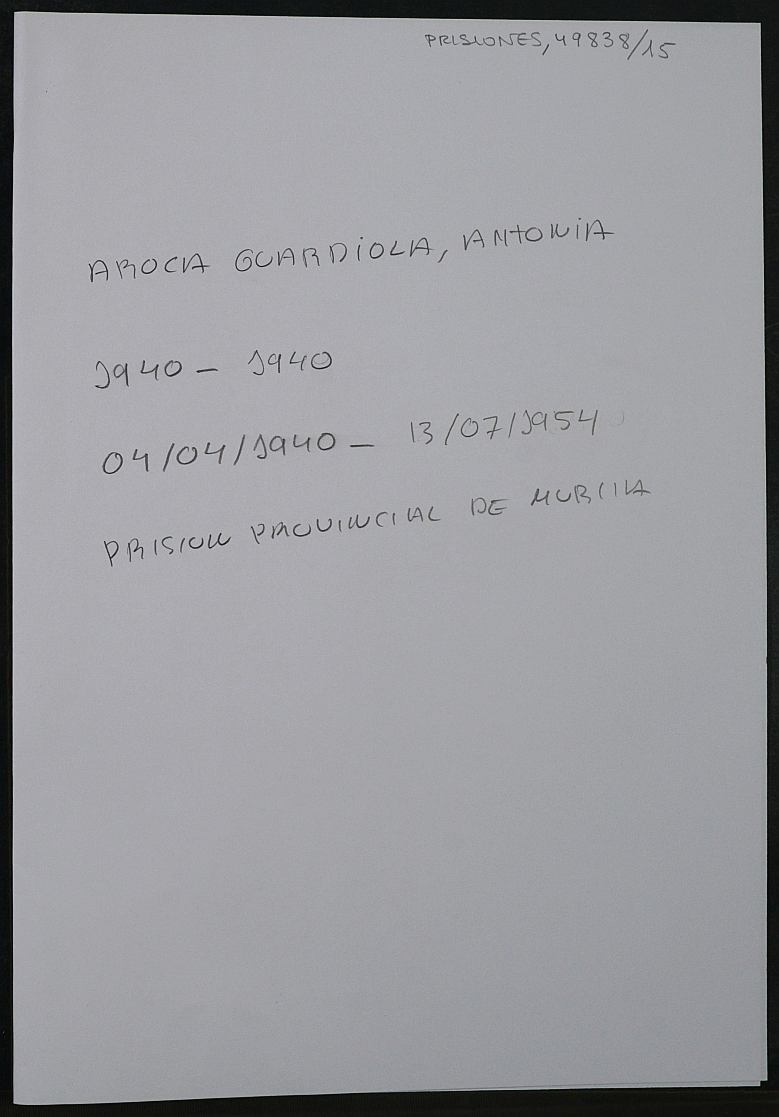 PRISIONES, 49838/15
AROCA GUARDIOLA, ANTONIA
1940 - 1940
04/04/1940 - 13/07/1954
PRISION PROVINCIAL DE MURCIA